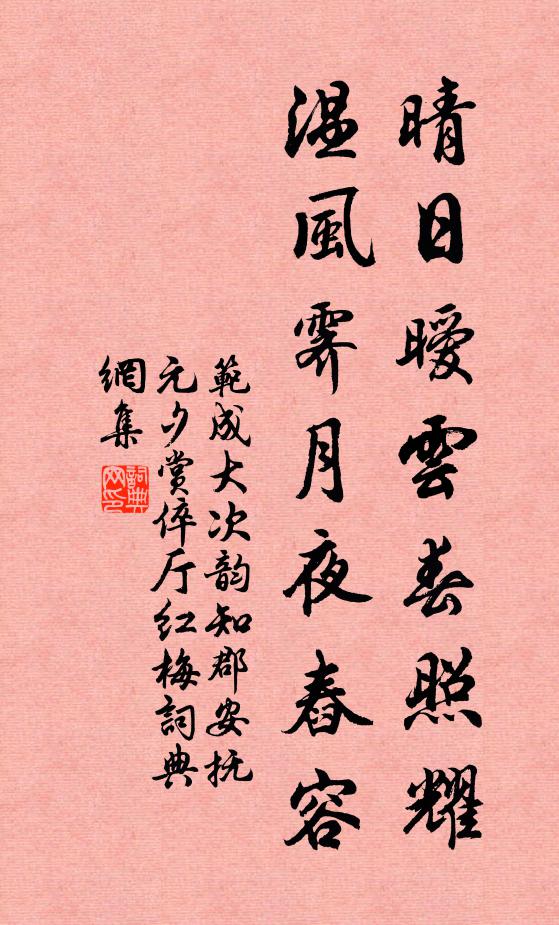 晴日暖雲春照耀
温風霁月夜舂容
範成大次韵知郡安抚
元夕賞倅厅红梅詞典
網集
詞典
网印